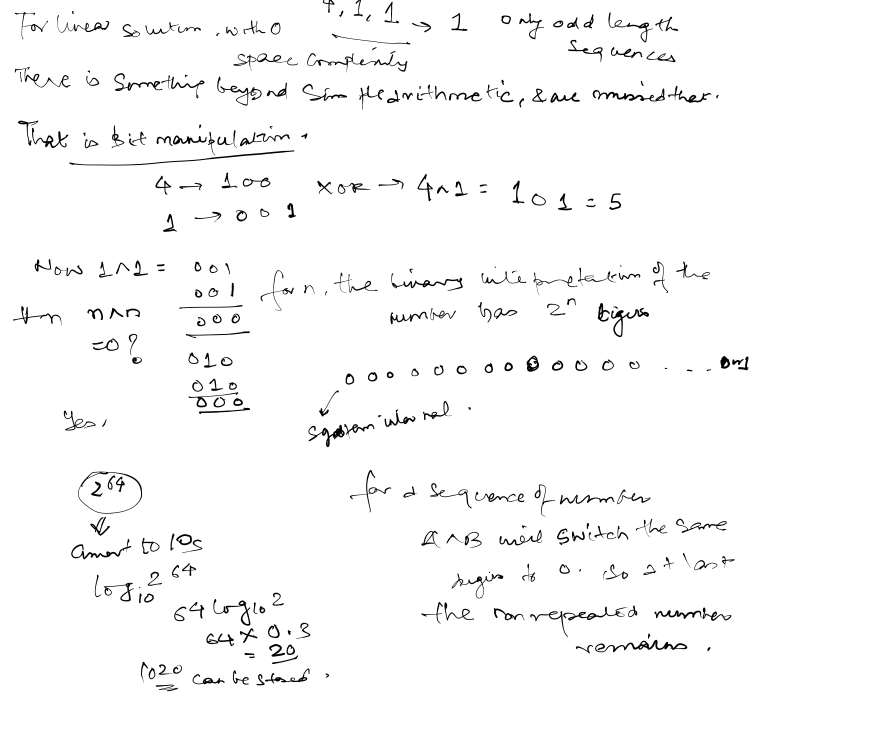 4, 1, 1 → 1 only odd length
For linear solution, with O sequences
space complexity
There is something beyond simple arithmetic, & we missed that.
That is Bit manipulation.
4 → 100 XOR → 4^1 = 101 = 5
1 → 001
Now 1^1 = 001 for n, the binary interpretation of the
001 number has 2^n
n^n 000
=0?
010
010 0 0 0 0 0 0 0 0 0 0 0 0 0 0 . . .
000
Yes, system
2^64 for a sequence of number
A^B will switch the same
amount to 10s to 0. So at last
log10 2^64 the non repeated number
64 log10 2 remains.
64 x 0.3
= 20
1020 can be stored.